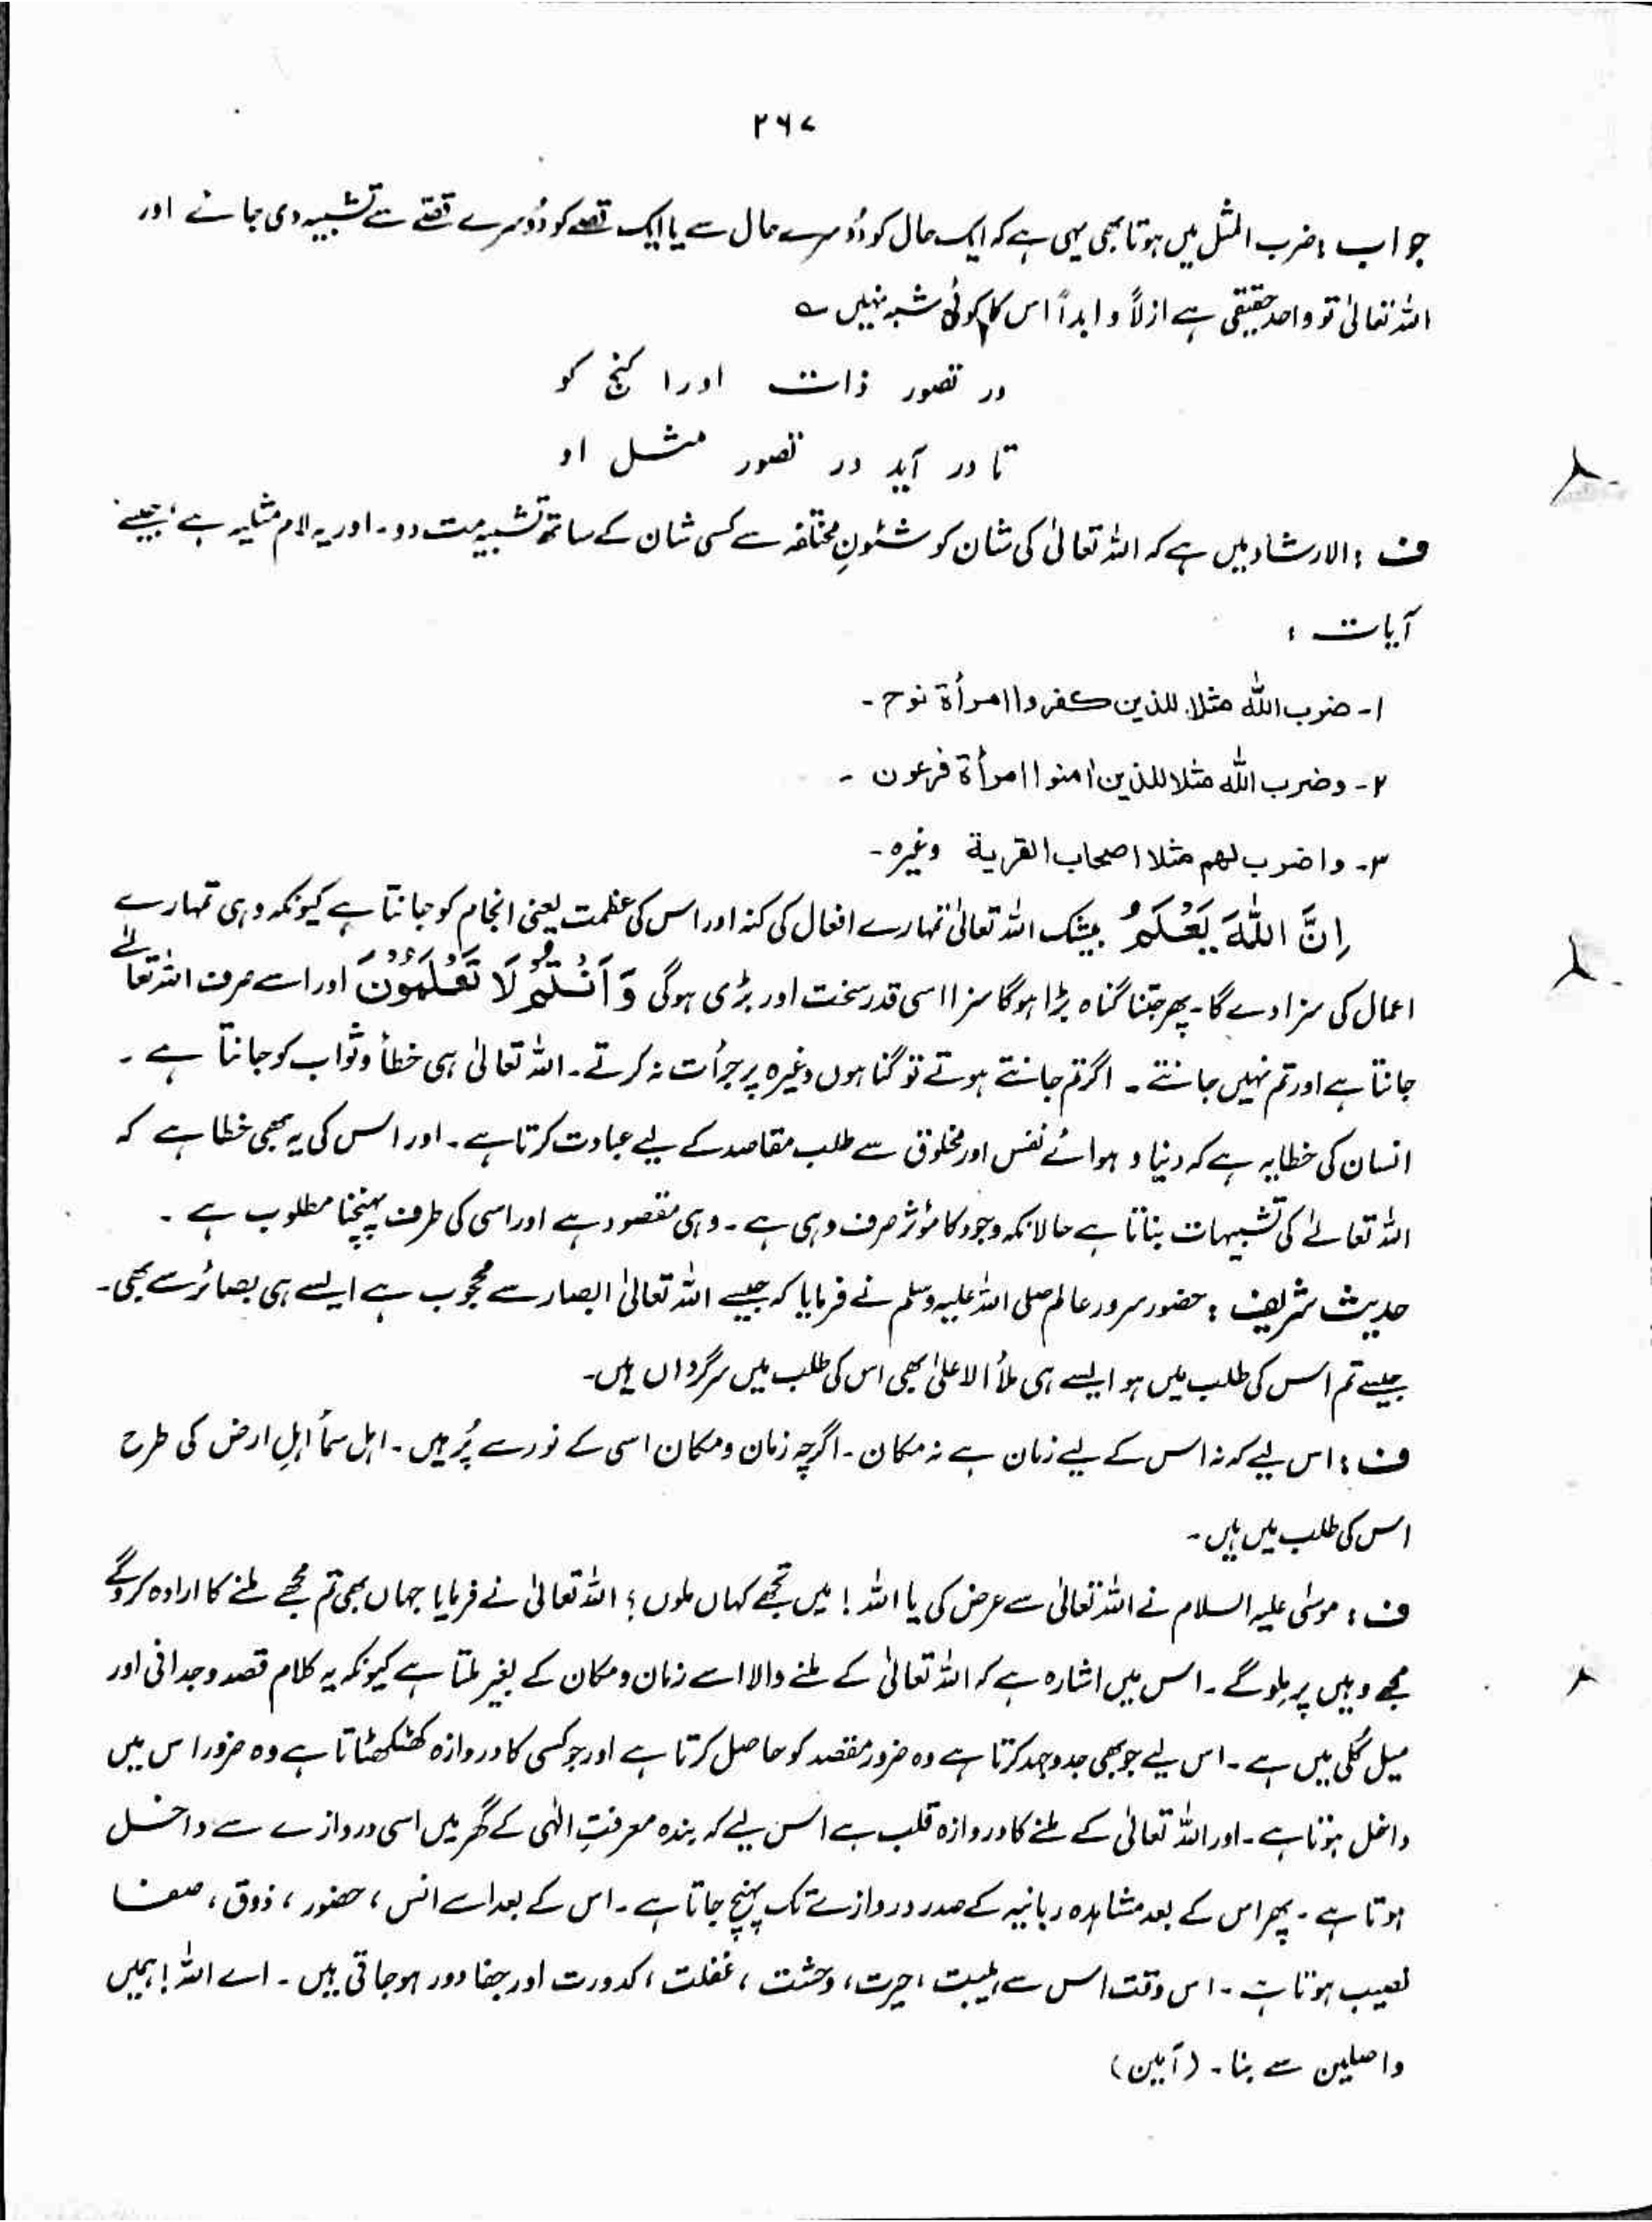 ۲۶۷
جواب : ضرب المثل میں ہوتا بھی یہی ہے کہ ایک حال کو دُوسرے حال سے یا ایک قصے کو دُوسرے قصّے سے تشبیہ دی جائے اور
اللہ تعالیٰ تو واحد حقیقی ہے ازلاً و ابداً اس کا کوئی شبہ نہیں ؎
در تصور ذات اورا کنج کو
تا در آید در تصور مثل او
ف : الارشاد میں ہے کہ اللہ تعالیٰ کی شان کو شئونِ مختلفہ سے کسی شان کے ساتھ تشبیہ مت دو۔ اور یہ لام مثلیہ ہے؛ جیسے
آیات :
۱- ضرب اللّٰه مثلا للذین کفروا امرأۃ نوح -
۲- وضرب اللّٰه مثلا للذین اٰمنوا امرأۃ فرعون -
۳- واضرب لهم مثلا اصحاب القریۃ وغیرہ -
اِنَّ اللّٰهَ یَعْلَمُ بیشک اللہ تعالیٰ تمہارے افعال کی کنہ اور اس کی عظمت یعنی انجام کو جانتا ہے کیونکہ وہی تمہارے
اعمال کی سزا دے گا۔ پھر جتنا گناہ بڑا ہوگا سزا اسی قدر سخت اور بڑی ہوگی وَ اَنْتُمْ لَا تَعْلَمُوْنَ اور اسے صرف اللہ تعالٰے
جانتا ہے اور تم نہیں جانتے ۔ اگر تم جانتے ہوتے تو گناہوں وغیرہ پر جرأت نہ کرتے۔ اللہ تعالیٰ ہی خطأ و ثواب کو جانتا ہے ۔
انسان کی خطا یہ ہے کہ دنیا و ہوائے نفس اور مخلوق سے طلب مقاصد کے لیے عبادت کرتا ہے۔ اور اس کی یہ بھی خطا ہے کہ
اللہ تعالےٰ کی تشبیہات بناتا ہے حالانکہ وجود کا مؤثر صرف وہی ہے ۔ وہی مقصود ہے اور اسی کی طرف پہنچنا مطلوب ہے ۔
حدیث شریف : حضور سرور عالم صلی اللہ علیہ وسلم نے فرمایا کہ جیسے اللہ تعالیٰ ابصار سے محجوب ہے ایسے ہی بصائر سے بھی۔
جیسے تم اس کی طلب میں ہو ایسے ہی ملأ الاعلیٰ بھی اس کی طلب میں سرگرداں ہیں۔
ف : اس لیے کہ نہ اس کے لیے زمان ہے نہ مکان ۔ اگرچہ زمان و مکان اسی کے نور سے پُر ہیں ۔ اہل سمأ اہلِ ارض کی طرح
اس کی طلب میں ہیں۔
ف : موسٰی علیہ السلام نے اللہ تعالیٰ سے عرض کی یا اللہ ! میں تجھے کہاں ملوں ؟ اللہ تعالیٰ نے فرمایا جہاں بھی تم مجھے ملنے کا ارادہ کرو گے
مجھے وہیں پر ملو گے ۔ اس میں اشارہ ہے کہ اللہ تعالیٰ کے ملنے والا اسے زمان و مکان کے بغیر ملتا ہے کیونکہ یہ کلام قصد وجدانی اور
میل کُلی میں ہے ۔ اس لیے جو بھی جدوجہد کرتا ہے وہ ضرور مقصد کو حاصل کرتا ہے اور جو کسی کا دروازہ کھٹکھٹاتا ہے وہ ضرور اس میں
داخل ہوتا ہے ۔ اور اللہ تعالیٰ کے ملنے کا دروازہ قلب ہے اس لیے کہ بندہ معرفتِ الٰہی کے گھر میں اسی دروازے سے داخل
ہوتا ہے ۔ پھر اس کے بعد مشاہدہ ربانیہ کے صدر دروازے تک پہنچ جاتا ہے ۔ اس کے بعد اسے انس ، حضور ، ذوق ، صفا
نصیب ہوتا ہے ۔ اس وقت اس سے ہیبت ، حیرت ، وحشت ، غفلت ، کدورت اور جفا دور ہو جاتی ہیں ۔ اے اللہ ! ہمیں
واصلین سے بنا ۔ (آمین)